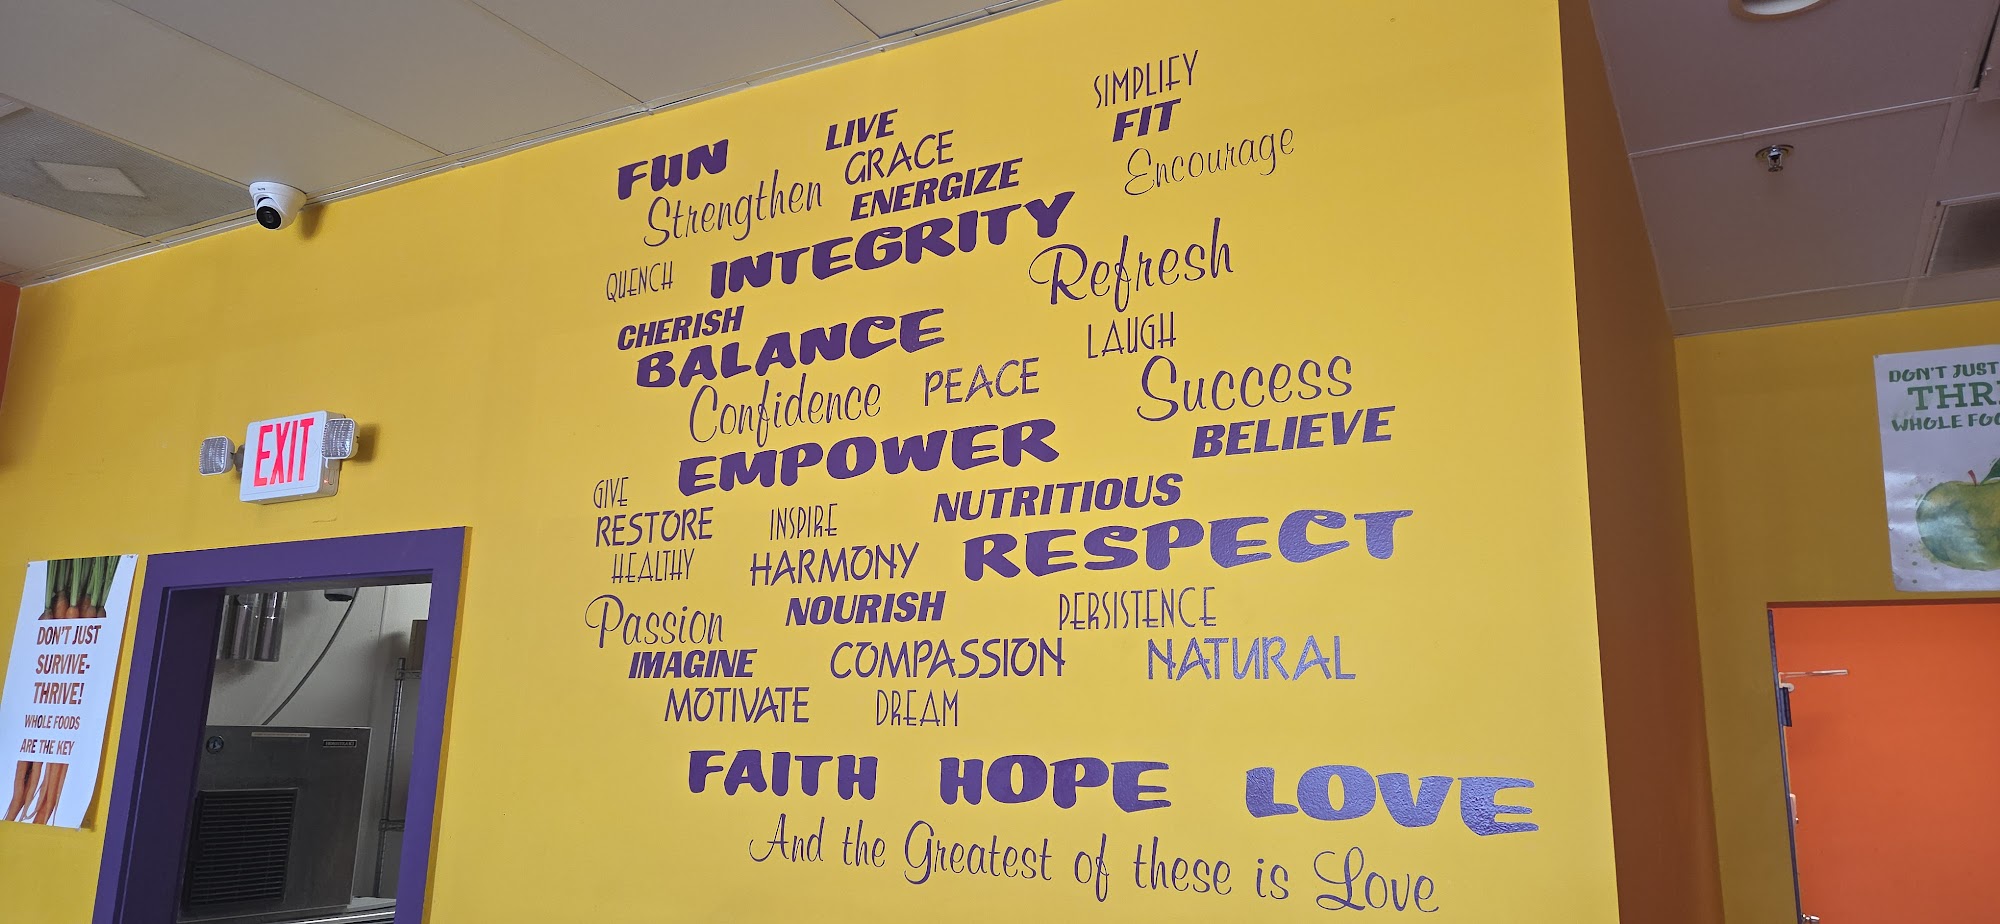 SIMPLIFY
LIVE
FIT
FUN
GRACE
Encourage
Strengthen
ENERGIZE
INTEGRITY
QUENCH
Refresh
CHERISH
BALANCE
LAUGH
Confidence
PEACE
Success
EMPOWER
BELIEVE
GIVE
NUTRITIOUS
RESTORE
INSPIRE
RESPECT
HEALTHY
HARMONY
Passion
NOURISH
PERSISTENCE
IMAGINE
COMPASSION
NATURAL
MOTIVATE
DREAM
FAITH HOPE LOVE
And the Greatest of these is Love
EXIT
DON'T JUST
SURVIVE-
THRIVE!
WHOLE FOODS
ARE THE KEY
DON'T JUST
THR
WHOLE FOO